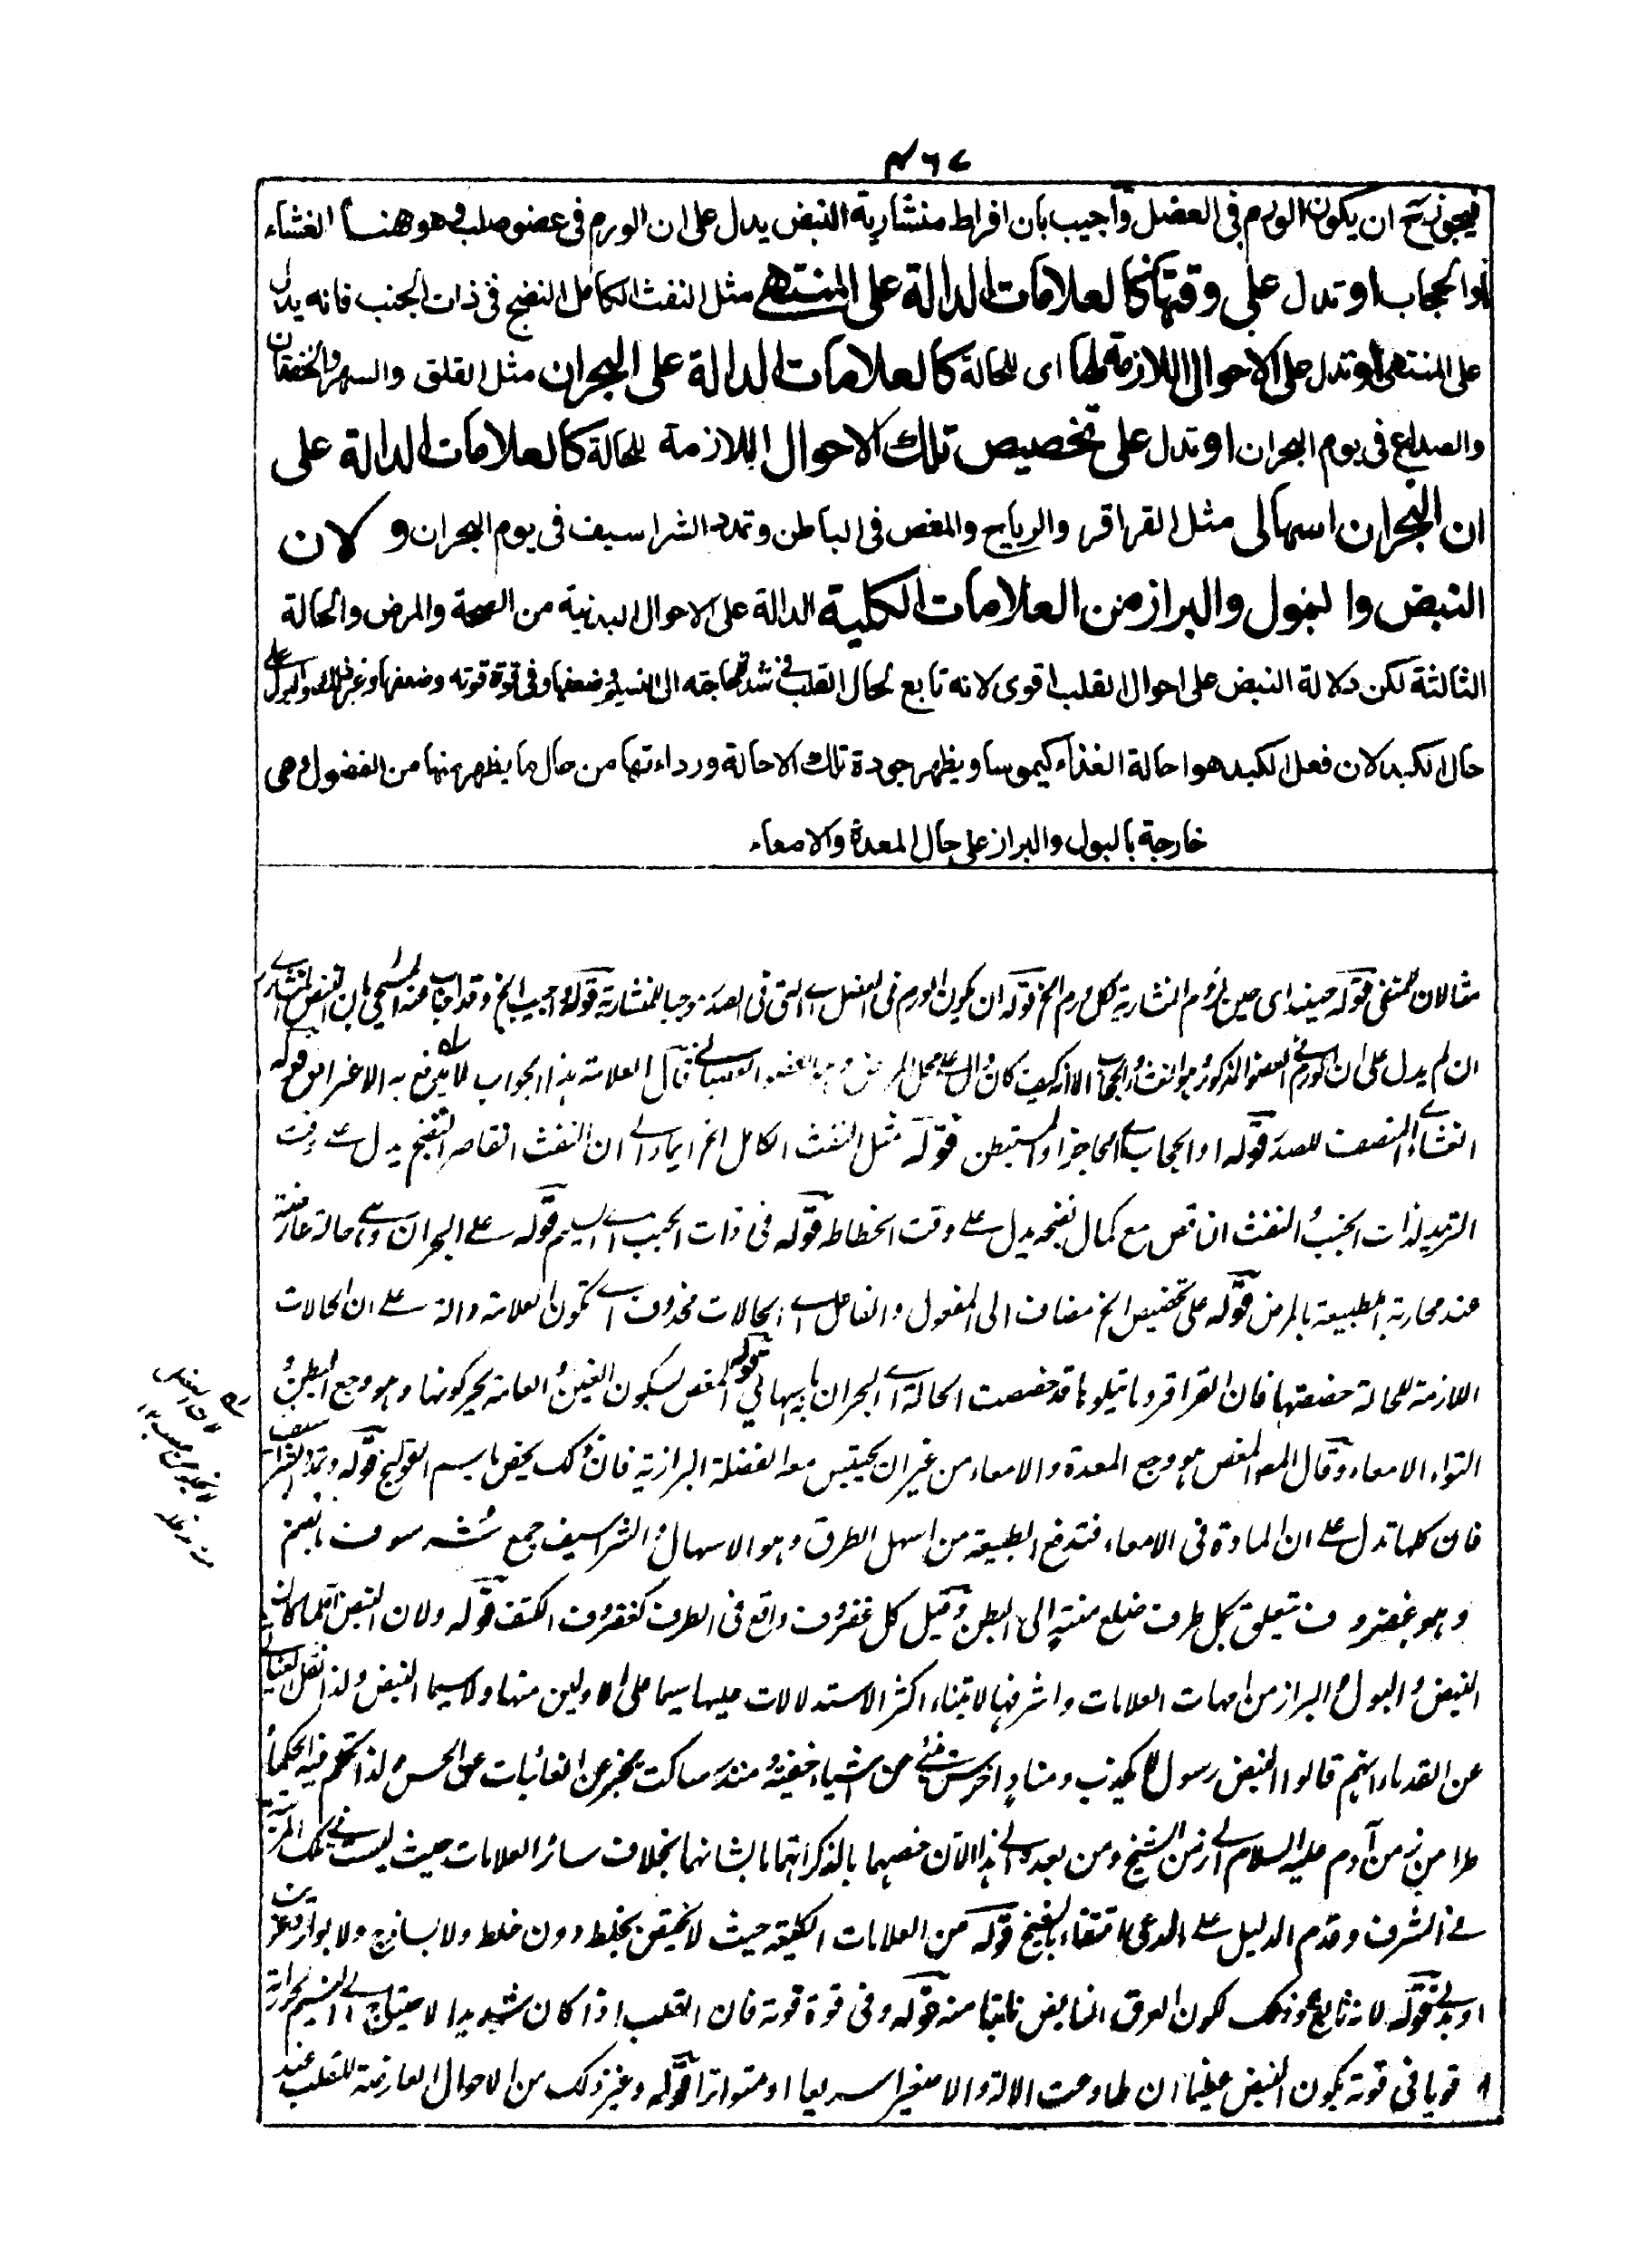 ٤٦٧
فيجوز ح ان يكون الورم فى العضل وأجيب بان افراط منشارية النبض يدل على ان الورم فى عضو صلب و هو هنا الغشاء
او الحجاب او تدل على وقتها كالعلامات الدالة على المنتهى مثل النفث الكامل النضج فى ذات الجنب فانه يدل
على المنتهى او تدل على الاحوال اللازمة لها اى للحالة كالعلامات الدالة على البحران مثل القلق والسهر والخفقان
والصداع فى يوم البحران او تدل على تخصيص تلك الاحوال اللازمة للحالة كالعلامات الدالة على
ان البحران اسهالى مثل القراقر والرياح والمغص فى الباطن وتمدد الشراسيف فى يوم البحران و لان
النبض والبول والبراز من العلامات الكلية الدالة على الاحوال البدنية من الصحة والمرض والحالة
الثالثة لكن دلالة النبض على احوال القلب اقوى لانه تابع لحال القلب فى شدة حاجته الى النسيم وضعفها وفى قوة قوته وضعفها وغير ذلك والبول على
حال الكبد لان فعل الكبد هو احالة الغذاء كيموسا ويظهر جودة تلك الاحالة ورداءتها من حال ما يظهر منها من الفضول وهى
خارجة بالبول والبراز على حال المعدة والامعاء
قوله حينئذ اى حين لزوم المنشارية لكل ورم الخ قوله ان يكون الورم فى العضل اى التى فى الصدر موجبا للمنشارية قوله واجيب الخ وقد اجاب عنه المسيحى بان النبض المنشارى
ان لم يدل على ان الورم فى العضو المذكور هو الغشاء والحجاب الا انه كيف كان دال على محل المرض قال العلامة هذا الجواب لا يندفع به الاعتراض قوله
الغشاء المنصف للصدر قوله او الحجاب اى الحاجز او المستبطن قوله مثل النفث الكامل الخ ايماء الى ان النفث القاصر النضج يدل على وقت
التزيد لذات الجنب والنفث الناقص مع كمال نضجه يدل على وقت انحطاطه قوله فى ذات الجنب اى السليم قوله على البحران وهى حالة عارضة
عند محاربة الطبيعة بالمرض قوله على تخصيص الخ مضاف الى المفعول والفاعل اى الحالات محذوف اى تكون العلامة دالة على ان الحالات
اللازمة للحالة خصصتها فان القراقر وما يتلوها قد خصصت الحالة اى البحران بالاسهالى قوله المغص بسكون الغين والعامة يحركونها وهو وجع البطن و
التواء الامعاء وقال المص المغص هو وجع المعدة والامعاء من غير ان يحتبس معه الفضلة البرازية فان ذلك يخص باسم القولنج قوله وتمدد الشراسيف
فان كلها تدل على ان المادة فى الامعاء فتدفع الطبيعة من اسهل الطرق وهو الاسهال والشراسيف جمع شرسوف بالضم
وهو غضروف متعلق بكل طرف ضلع منتهٍ الى البطن وقيل كل غضروف واقع فى الطرف كغضروف الكتف قوله ولان النبض الخ لما كان
النبض والبول والبراز من امهات العلامات واشرفها لابتناء اكثر الاستدلالات عليها سيما على الاولين منها ولا سيما النبض ولذا نقل
عن القدماء انهم قالوا النبض رسول لا يكذب ومنادٍ اخرس ينبئ عن اشياء خفية ومنذر ساكت يخبر عن الغائبات عن الحس ولذا تكلم فيه الحكماء
طرا من زمن آدم عليه السلام الى زمن الشيخ ومن بعده الى هذا الآن خصهما بالذكر اهتماما بشانهما بخلاف سائر العلامات حيث ليست فى تلك المرتبة
فى الشرف وقدم الدليل على المدعى اقتفاء بالشيخ قوله من العلامات الكلية حيث لا تختص بخلط دون خلط ولا بساذج ولا بمادى
قوله لانه تابع وذلك لكون العرق النابض نابتا منه قوله وفى قوة قوته فان القلب اذا كان شديد الاحتياج الى النسيم لحرارته
قويا فى قوته يكون النبض عظيما ان طاوعت الالة والا صغيرا سريعا او متواترا قوله وغير ذلك من الاحوال العارضة للقلب عند